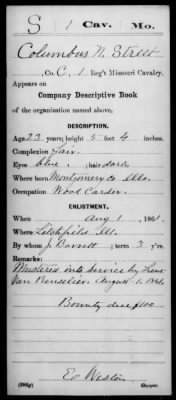 S | 1 | Cav. | Mo.
Columbus N. Street
, Co. C, 1 Reg't Missouri Cavalry.
Appears on
Company Descriptive Book
of the organization named above.
DESCRIPTION.
Age 23 years; height 5 feet 4 inches.
Complexion Fair
Eyes blue ; hair dark
Where born Montgomery Co. Ills.
Occupation Wool Carder.
ENLISTMENT.
When Aug 1 , 1861.
Where Litchfield Ill.
By whom J. Barrett ; term 3 y'rs.
Remarks:
Mustered into service by Lieut
Van Renselier August 1, 1861.
Bounty due $100
Ed Weston
Copyist.